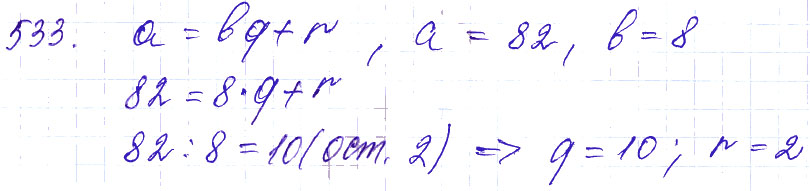 533. a = bq + r, a = 82, b = 8
82 = 8·q + r
82 : 8 = 10 (ост. 2) => q = 10; r = 2